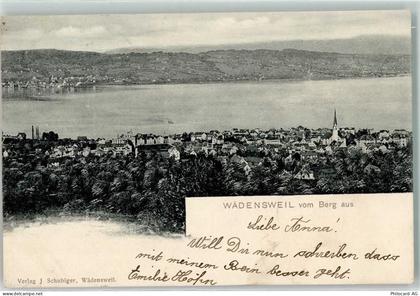 WÄDENSWEIL vom Berg aus
Liebe Anna!
Will Dir nun schreiben dass
mit meinem Bein besser geht.
Emilie Höhn
Verlag J. Schubiger, Wädensweil.
www.ansichtskartenversand.com